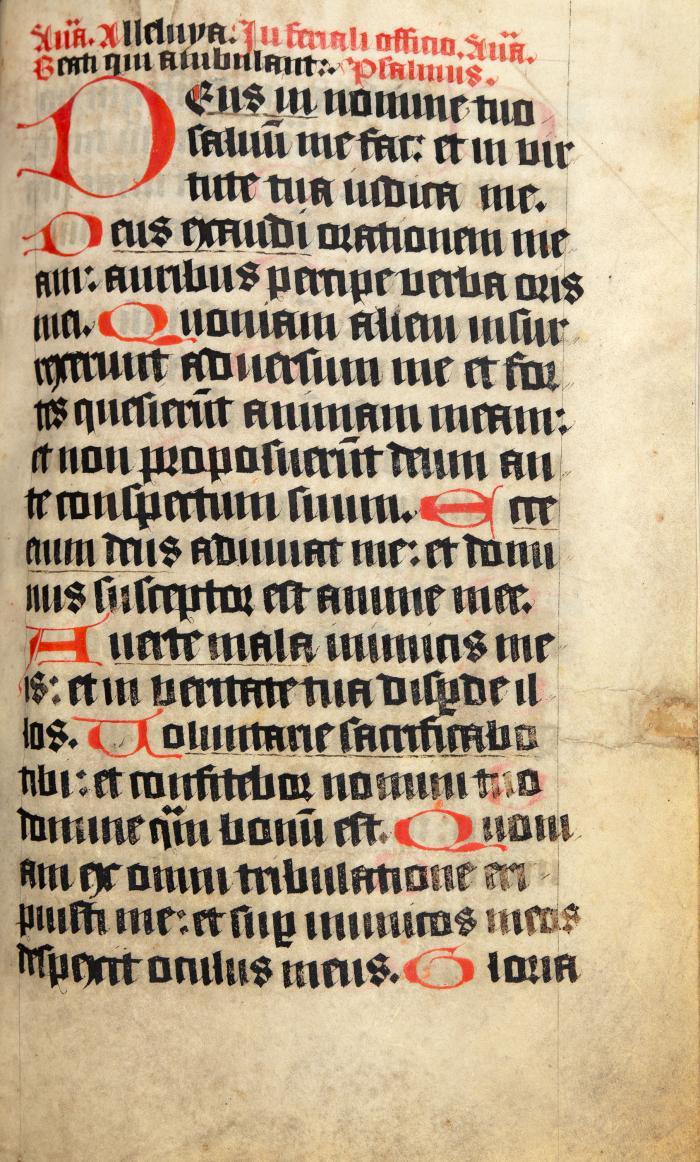 Añā. Alleluya. In feriali officio. Añā.
Beati qui ambulant:. Psalmus.
DEus in nomine tuo
saluū me fac: et in vir
tute tua iudica me.
Deus exaudi orationem me
am: auribus percipe verba oris
mei. Quoniam alieni insur
rexerunt aduersum me et for
tes quesierūt animam meam:
et non proposuerūt deum an
te conspectum suum. Ecce
enim deus adiuuat me: et domi
nus susceptor est anime mee.
Auerte mala inimicis me
is: et in veritate tua disꝑde il
los. Voluntarie sacrificabo
tibi: et confitebor nomini tuo
domine qm̄ bonū est. Quoni
am ex omni tribulatione eri
puisti me: et suꝑ inimicos meos
despexit oculus meus. Gloria